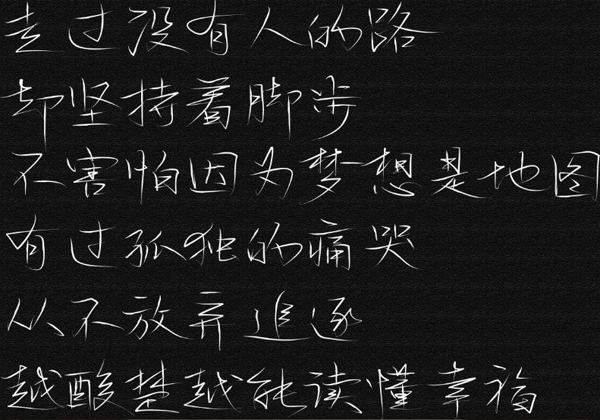 走过没有人的路
却坚持着脚步
不害怕因为梦想是地图
有过孤独的痛哭
从不放弃追逐
越酸楚越能读懂幸福